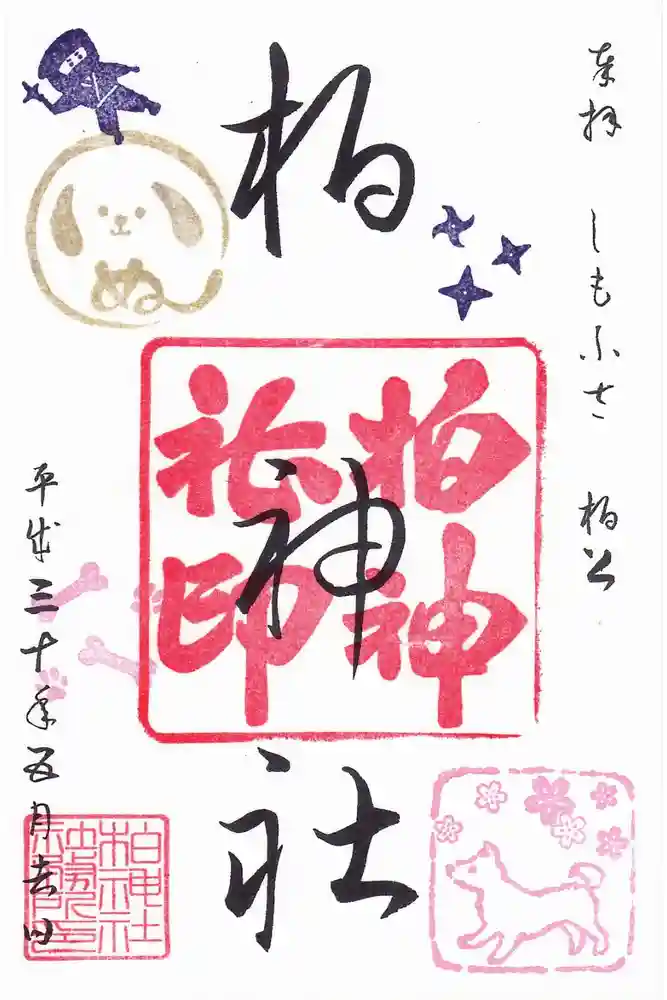 奉拝　しもふさ　柏公
柏神社
柏神
社印
ぬ
平成三十年五月吉日
柏神社